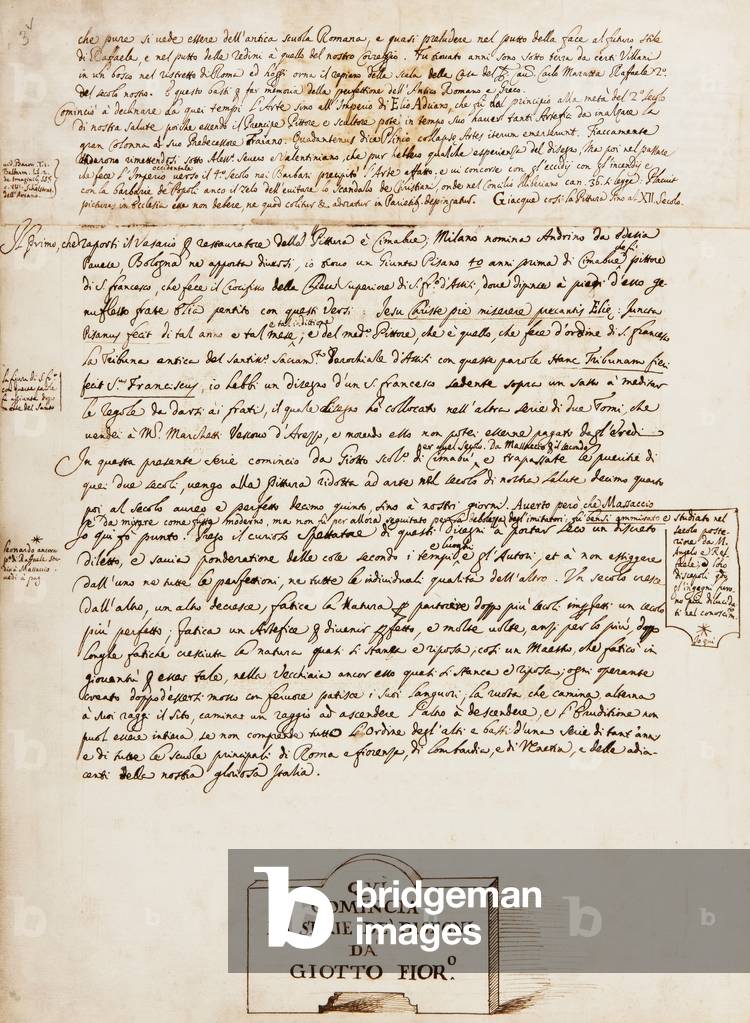 3
che pure si vede essere dell'antica scuola Romana, e quasi preludere nel putto della face al futuro stile
di Raffaele, e nel putto delle redini à quello del nostro Coreggio. Fù trovato anni sono sotto terra da certi Villani
in un bosco nel ristretto di Roma ed hoggi orna il ripiano della Scala della Casa del Carlo Maratta Raffaele 2º
del secolo nostro. E questo basti far memoria della perfettione dell'Antico Romano e Greco.
Cominciò à declinare da quei tempi l'Arte sino all'Imperio di Elio Adriano, che fù dal principio alla metà del 2º secolo
di nostra salute, poiche essendo il Prencipe Pittore e Scultore potè in tempo suo haver tanti Artefici da inalzare la
gran Colonna à suo Predecessore Traiano. dice Plinio collapsae Artes iterum emerserunt. Fiaccamente
andarono rimettendosi sotto Aless. Severo e Valentiniano, che pur hebbero qualche esperienza del disegno, Ma poi nel passare
che fece l'Imperio occidentale verso il 4º secolo nei Barbari precipitò l'Arte affatto, e vi concorse con gl'eccidij con gl'incendij e
con la barbarie de Popoli anco il zelo dell'evitare lo scandallo de Cristiani, onde nel Concilio Illiberiano can. 36. si legge. Placuit
picturas in Ecclesia esse non debere, ne quod colitur et adoratur in Parietibus depingatur. Giacque così la Pittura sino al XII. secolo.
Il primo, che raporti il Vasario restauratore della Pittura è Cimabue; Milano nomina Andrino da Edesia
Pavese, Bologna ne apporta diversi, io trovo un Giunta Pisano 40 anni prima di Cimabue pittore
di S. Francesco che fece il Crocifisso della Chiesa superiore di S. Frº d'Assisi, dove dipinse à piedi d'esso ge-
nuflesso frate Elia pentito con questi versi: Jesu Christe pie miserere precantis Elie: Juncta
Pisanus fecit di tal anno e tal mese, e tal inditione e del medº Pittore, che è quello, che fece d'ordine di S. Francesco
la Tribuna antica del Santissº Sacramtº Parochiale d'Assisi con queste parole Hanc Tribunam fieri
fecit Sus Franciscus, io hebbi un disegno d'un S. Francesco sedente sopra un sasso à meditar
le regole da darsi ai frati, il quale disegno hò collocato nell'altra serie di due Tomi, che
vendei à Mr Marchetti Vescovo d'Arezzo, e morendo esso non potei esserne pagato da gl'Eredi
In questa presente serie comincio da Giotto scolº di Cimabue, e trapassate le pueritie di
quei due secoli, vengo alla Pittura ridotta ad arte nel secolo di nostra salute decimo quarto
poi al secolo aureo e perfetto decimo quinto, sino à nostri giorni. Averto però che Massaccio
è da mirare come tutto moderno, ma non fù per allora seguitato per la debolezza degl'imitatori, fù bensì ammirato e
studiato nel
secolo poste-
riore da M.
Angelo e Raf-
faele, e loro
discepoli
gl'ingegni
più dilucida-
ti nel conoscim.
Io qui fò punto. Prego il curioso spettatore di questi Disegni à portar seco un discreto
diletto, e savia ponderatione delle cose secondo i tempi, e luoghi e gl'Autori, et à non essiggere
dall'uno nè tutte le perfettioni, nè tutte le individuali qualità dell'altro. Un secolo cresce
dall'altro, un altro decresce, fatica la Natura partorire doppo più secoli imperfetti un secolo
più perfetto; fatica un Artefice divenir perfetto, e molte volte, anzi per lo più doppo
longhe fatiche cresciuta la natura quasi si stanca e riposa, così un Maestro, che faticò in
gioventù esser tale, nella Vecchiaia ancor esso quasi si stanca e riposa; ogni operante
creato doppo d'essersi mosso con fervore patisce i suoi languori; la ruota che camina alterna
à suoi raggi il sito, camina un raggio ad ascendere l'altro à descendere, e l'Eruditione non
puol essere intiera se non comprende tutto l'Ordine degl'alti e bassi d'una serie di tant'anni
e di tutte le scuole principali di Roma e Fiorenza, di Lombardia, e di Venetia, e delle adia-
centi della nostra gloriosa Italia.
QVÌ
COMINCIA
SERIE DE' DISEGNI
DA
GIOTTO FIORº.
bridgeman
images